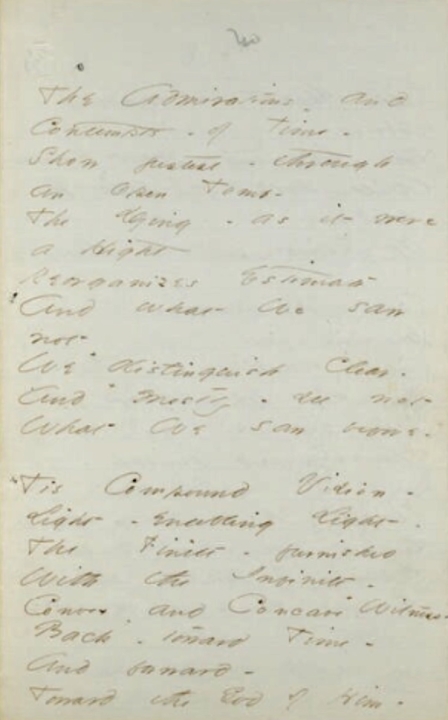 The Admirations – and
Contempts – of Time –
Show justest – through
an Open Tomb –
The Dying – as it were
a Hight
Reorganizes Estimate
And what We saw
not
We distinguish clear –
And mostly – see not
What We saw before –
'Tis Compound Vision –
Light – enabling Light –
The Finite – furnished
With the Infinite –
Convex – and Concave Witness –
Back – toward Time –
And forward –
Toward the God of Him –